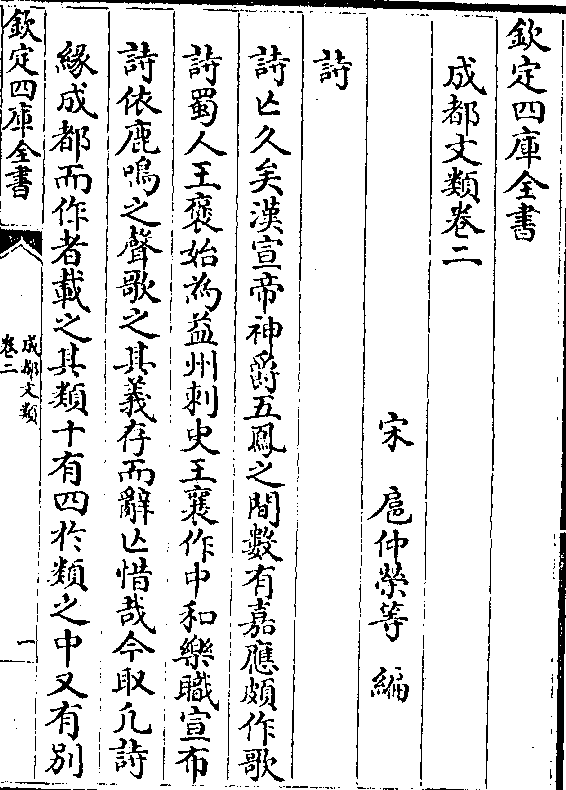 欽定四庫全書
成都文類卷二
宋　扈仲榮等　編
詩
詩亾久矣漢宣帝神爵五鳳之間數有嘉應頗作歌
詩蜀人王褒始為益州刺史王襄作中和樂職宣布
詩依鹿鳴之聲歌之其義存而辭亾惜哉今取凡詩
緣成都而作者載之其類十有四於類之中又有別
欽定四庫全書
成都文類
卷二
一